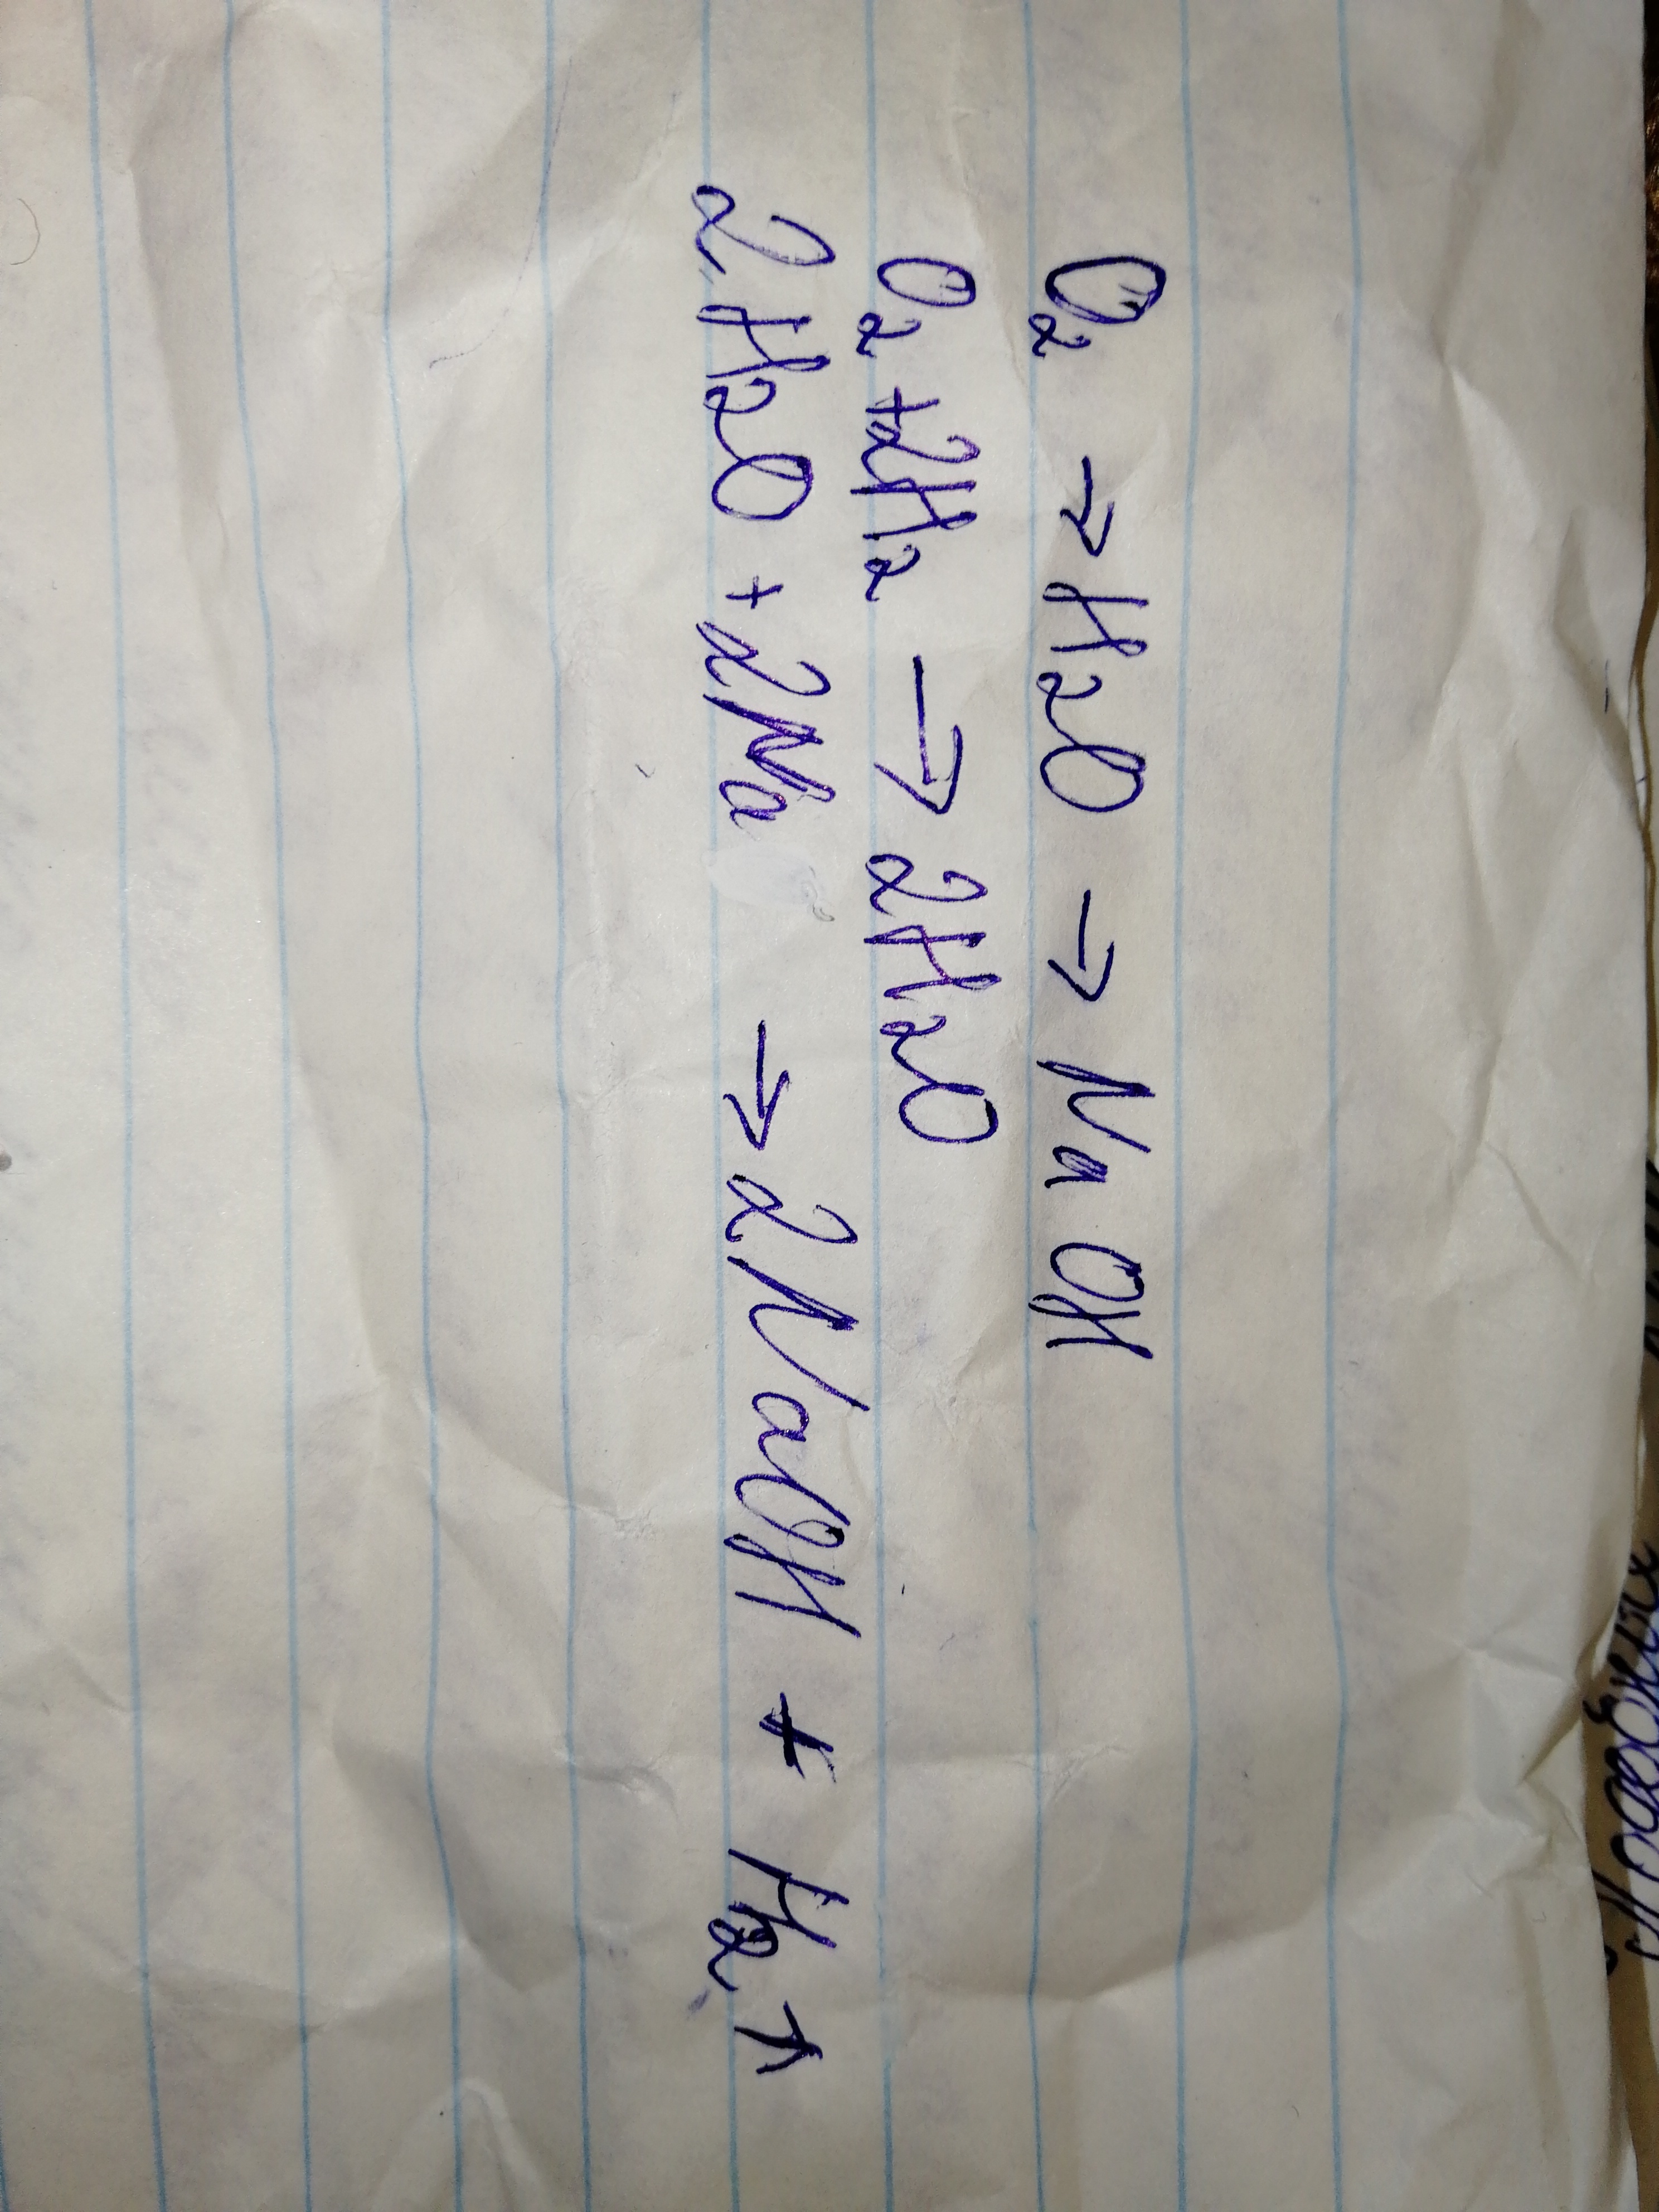 O₂ → H₂O → NaOH
O₂ + 2H₂ → 2H₂O
2H₂O + 2Na → 2NaOH + H₂↑